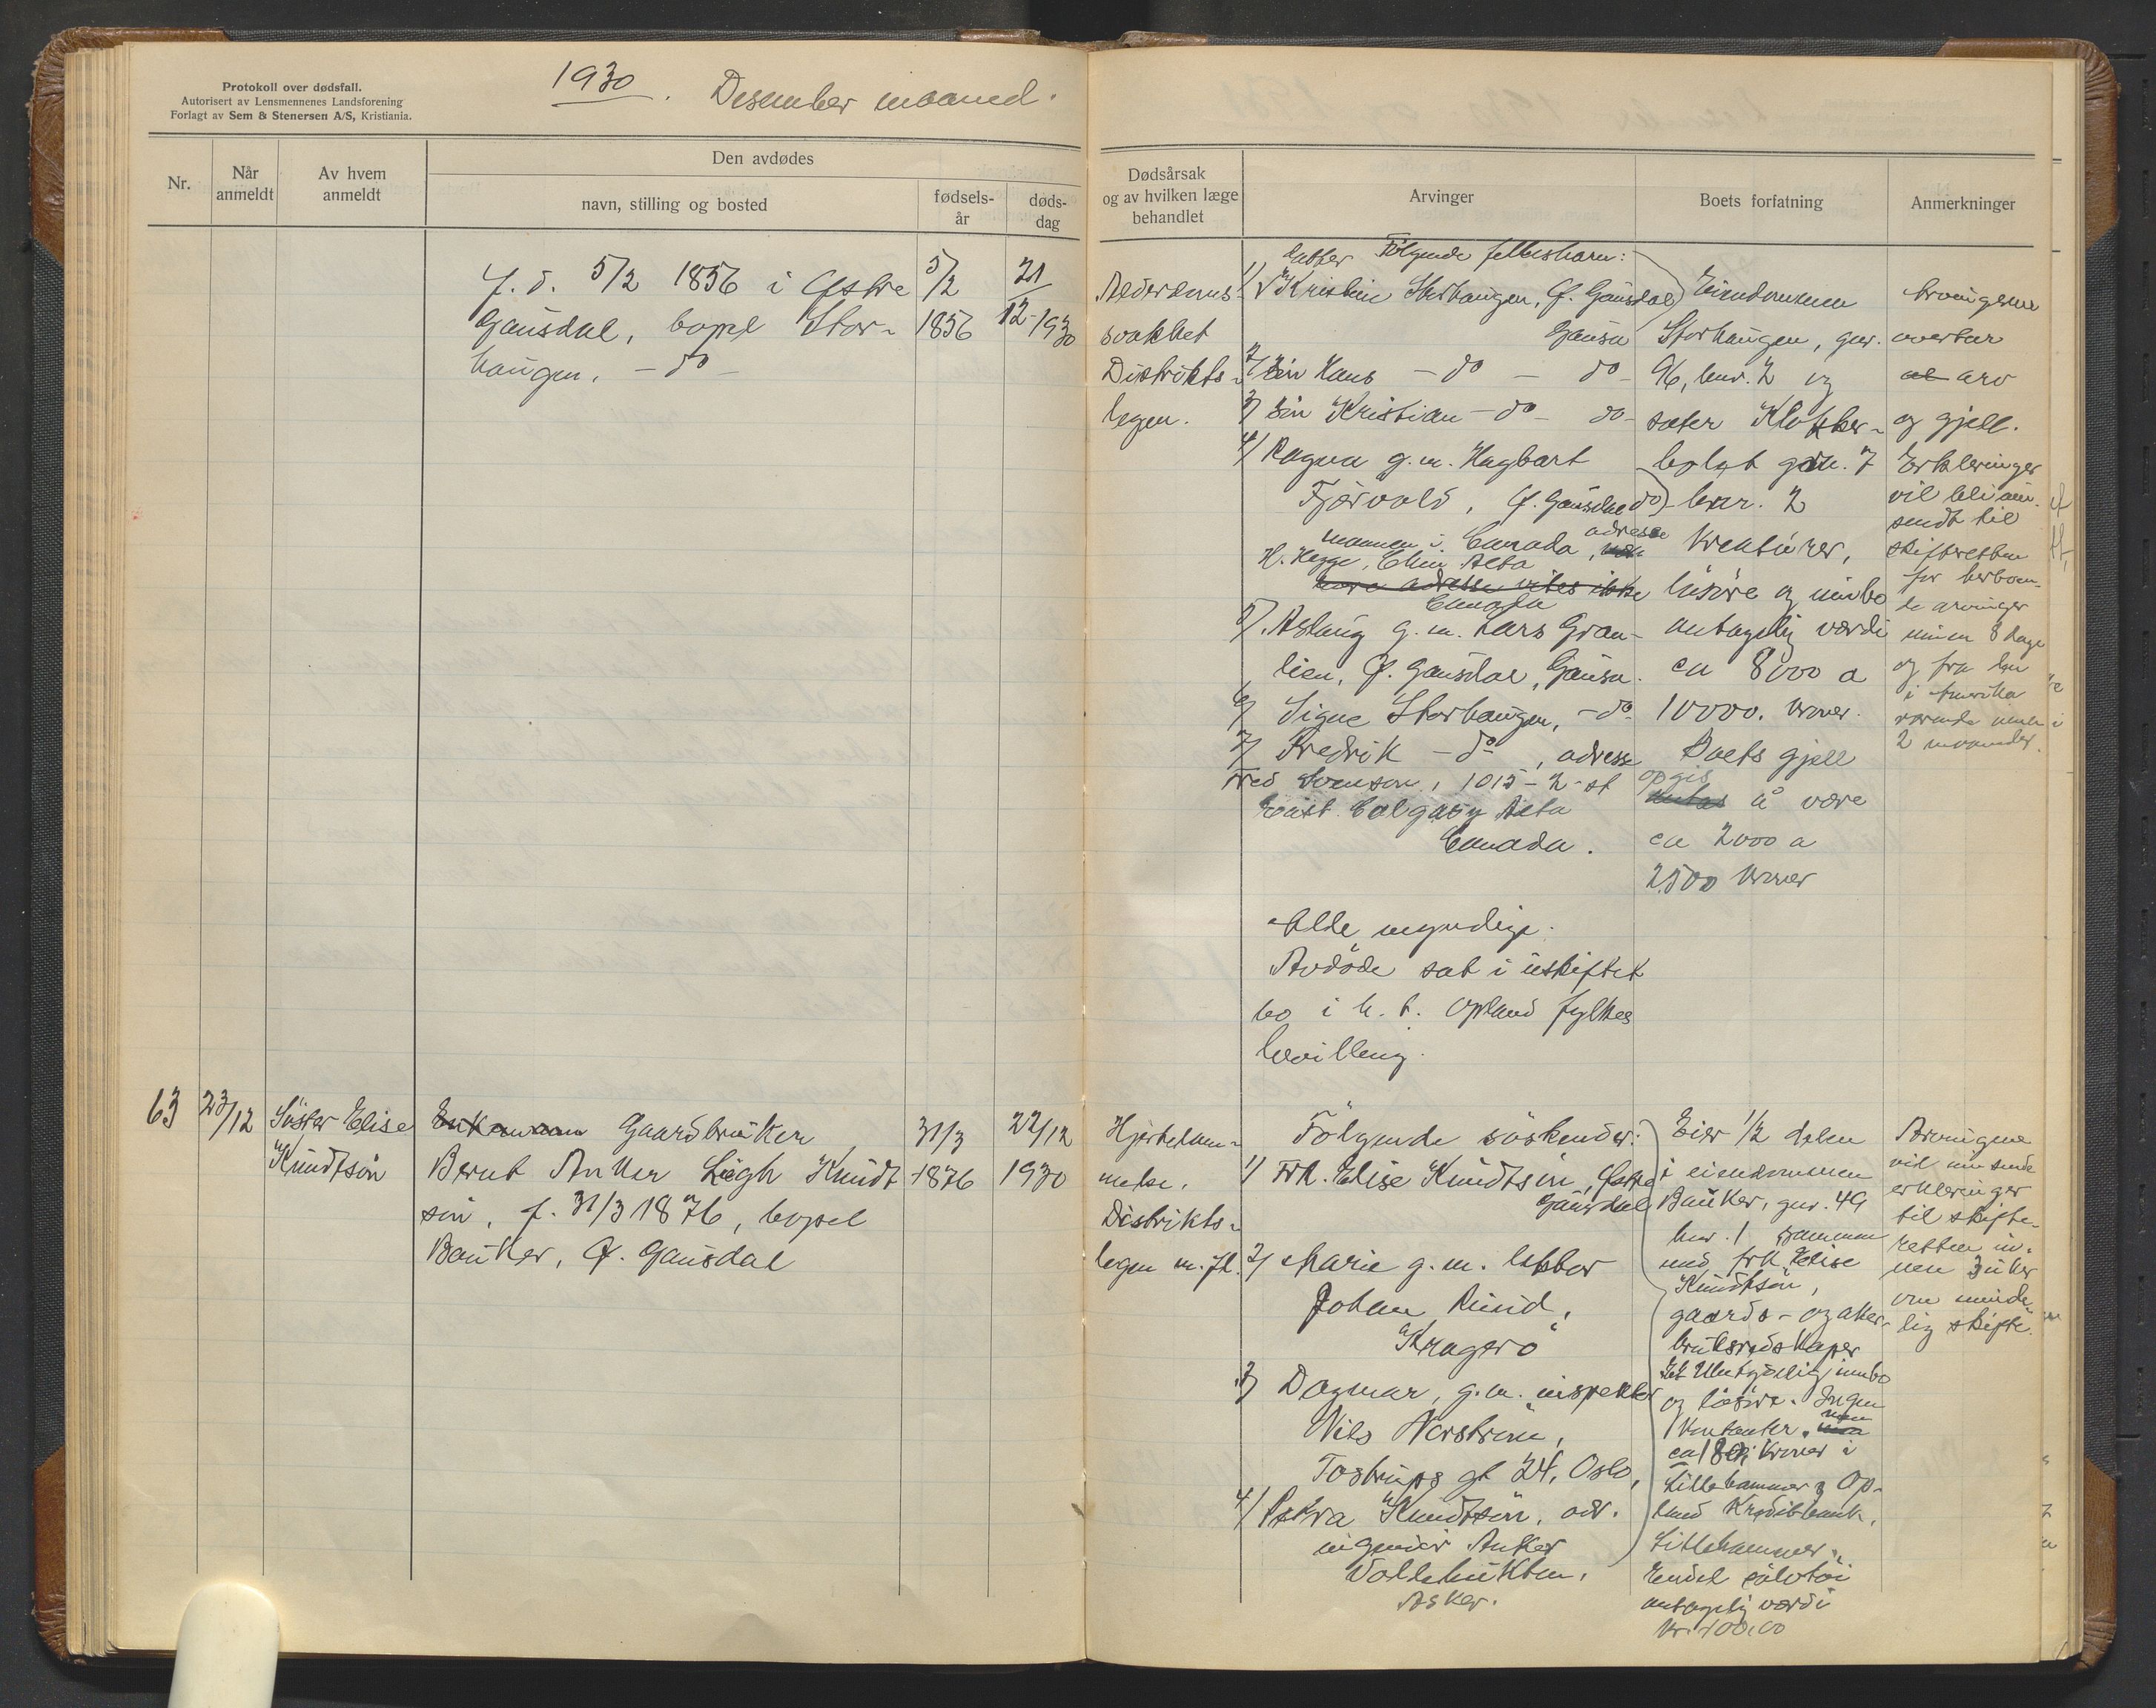 Protokoll over dødsfall.
Autorisert av Lensmennenes Landsforening
Forlagt av Sem & Stenersen A/S, Kristiania.
1930. Desember maaned.
Nr.
Når anmeldt
Av hvem anmeldt
Den avdødes
navn, stilling og bosted
fødsels-år
døds-dag
Dødsårsak og av hvilken læge behandlet
Arvinger
Boets forfatning
Anmerkninger
f. d. 5/2 1856 i Østre
Gausdal, bopel Stor-
haugen. - do -
5/2
1856
21
12-1930
Alderdoms-
svakhet
Distrikts-
legen.
datter Følgende fellesbarn:
1) Kristine Storhaugen, Ø. Gausdal
Gausa
2) Søn Hans - do - do -
3) Søn Kristian - do - do -
4) Ragna g. m. Hagbart
Fjørvold, Ø. Gausdal do)
mannen i Canada, adresse
H. Hegge, Alta
hvis adresse vites ikke
Canada
5) Aslaug g. m. Lars Gran-
lien, Ø. Gausdal, Gausa.
6) Signe Storhaugen, - do -
7) Fredrik - do -, adresse
Fred Svenson, 1015 - 2 - st
East. Calgary Alta
Canada.
Alle myndige.
Avdøde sat i uskiftet
bo i h. t. Opland fylkes
bevilling.
Eiendommen
Storhaugen, gnr.
96, bnr. 2 og
sæter Klokker-
bølet gnr. 7
bnr. 2
Kreaturer,
løsøre og innbo
antagelig værdi
ca 8000 a
10000. kroner.
Boets gjell
opgis
antas å være
ca 2000 a
2500 kroner
Arvingene
overtar
arv
og gjell.
Erkleringer
vil bli inn-
sendt til
skifteretten
for herboen-
de arvinger
innen 8 dage
og fra den
i Amerika
værende innen
2 maaneder.
63
23/12
Søster Elise
Knudtsøn
Gaardbruker
Bernt Anker Lëgh Knudt-
søn, f. 31/3 1876, bopel
Bauker, Ø. Gausdal
31/3
1876
22/12
1930
Hjertelam-
melse.
Distrikts-
legen m. fl.
Følgende søskender:
1) Frk. Elise Knudtsøn, Østre
Gausdal
2) Marie g. m. lektor
Johan Ruud,
Kragerø
3) Dagmar, g. m. inspektør
Nils Nerstrøm,
Tostrups gt 24, Oslo,
4) Petra Knudtsøn, adr.
ingeniør Anker
Asker.
Eier 1/2 delen
i eiendommen
Bauker, gnr. 49
bnr. 1 sammen
med frk. Elise
Knudtsøn,
gaards- og aker-
bruksredskaper
innbo
og løsøre. Ingen
kontanter, men
kroner i
Lillehammer & Op-
land Kreditbank,
Lillehammer.
Endel sølvtøi
antagelig værdi
kr. 100,00
Arvingene
vil innsende
erkleringer
til skifte-
retten in-
nen 3 uker
om minde-
lig skifte.